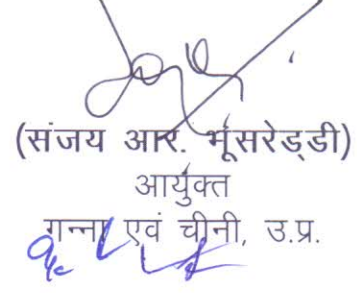 (संजय आर. भूसरेड्डी)
आयुक्त
गन्ना एवं चीनी, उ.प्र.